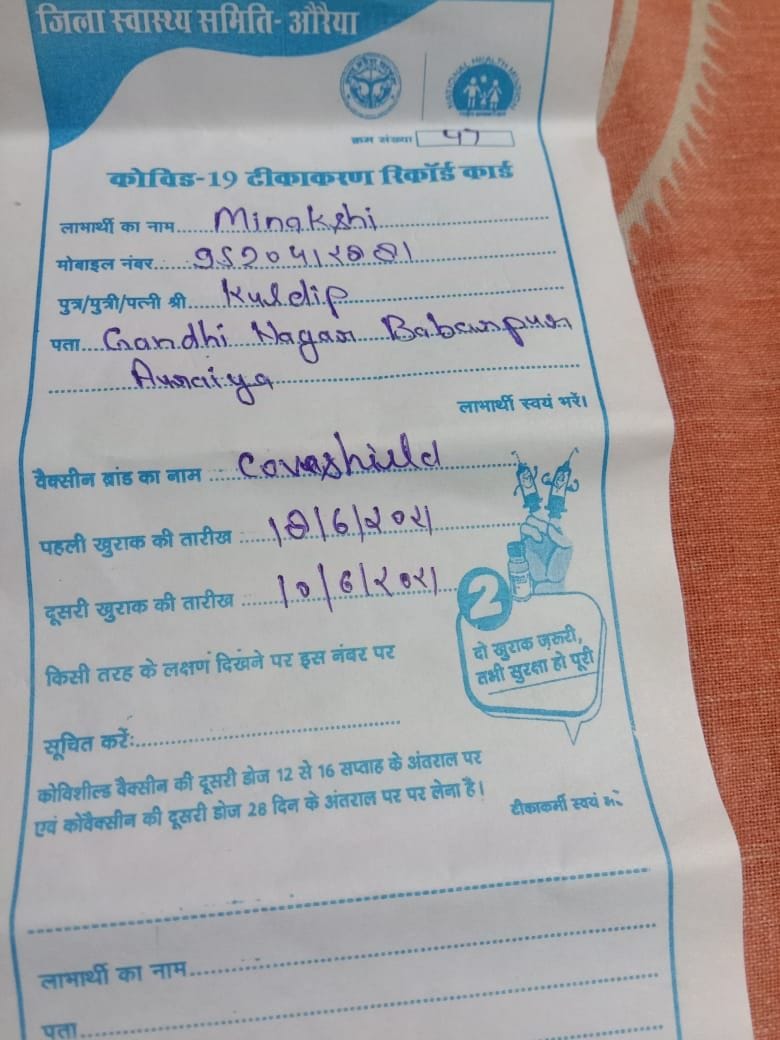 जिला स्वास्थ्य समिति- औरैया
NATIONAL HEALTH MISSION
क्रम संख्या 47
कोविड-19 टीकाकरण रिकॉर्ड कार्ड
लाभार्थी का नाम.... Minakshi
मोबाइल नंबर....
पुत्र/पुत्री/पत्नी श्री.... Kuldip
पता.... Gandhi Nagar Babarpur
Auraiya
लाभार्थी स्वयं भरें।
वैक्सीन ब्रांड का नाम .... Coveshield
पहली खुराक की तारीख ....
दूसरी खुराक की तारीख .... 10/6/२०२1
2
दो खुराक ज़रूरी,
तभी सुरक्षा हो पूरी
किसी तरह के लक्षण दिखने पर इस नंबर पर
सूचित करें:....
कोविशील्ड वैक्सीन की दूसरी डोज 12 से 16 सप्ताह के अंतराल पर
एवं कोवैक्सीन की दूसरी डोज 28 दिन के अंतराल पर पर लेना है।
टीकाकर्मी स्वयं
लाभार्थी का नाम....
पता....